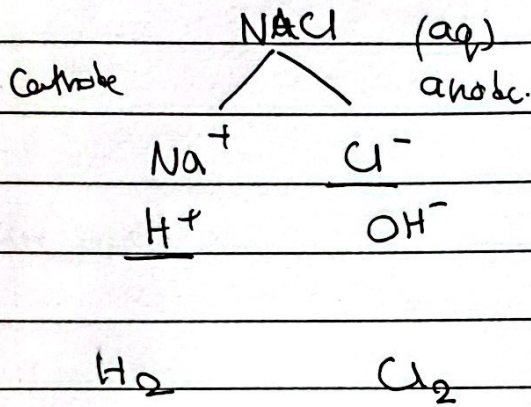 NaCl (aq)
Cathode anode.
Na⁺ Cl⁻
H⁺ OH⁻
H₂ Cl₂